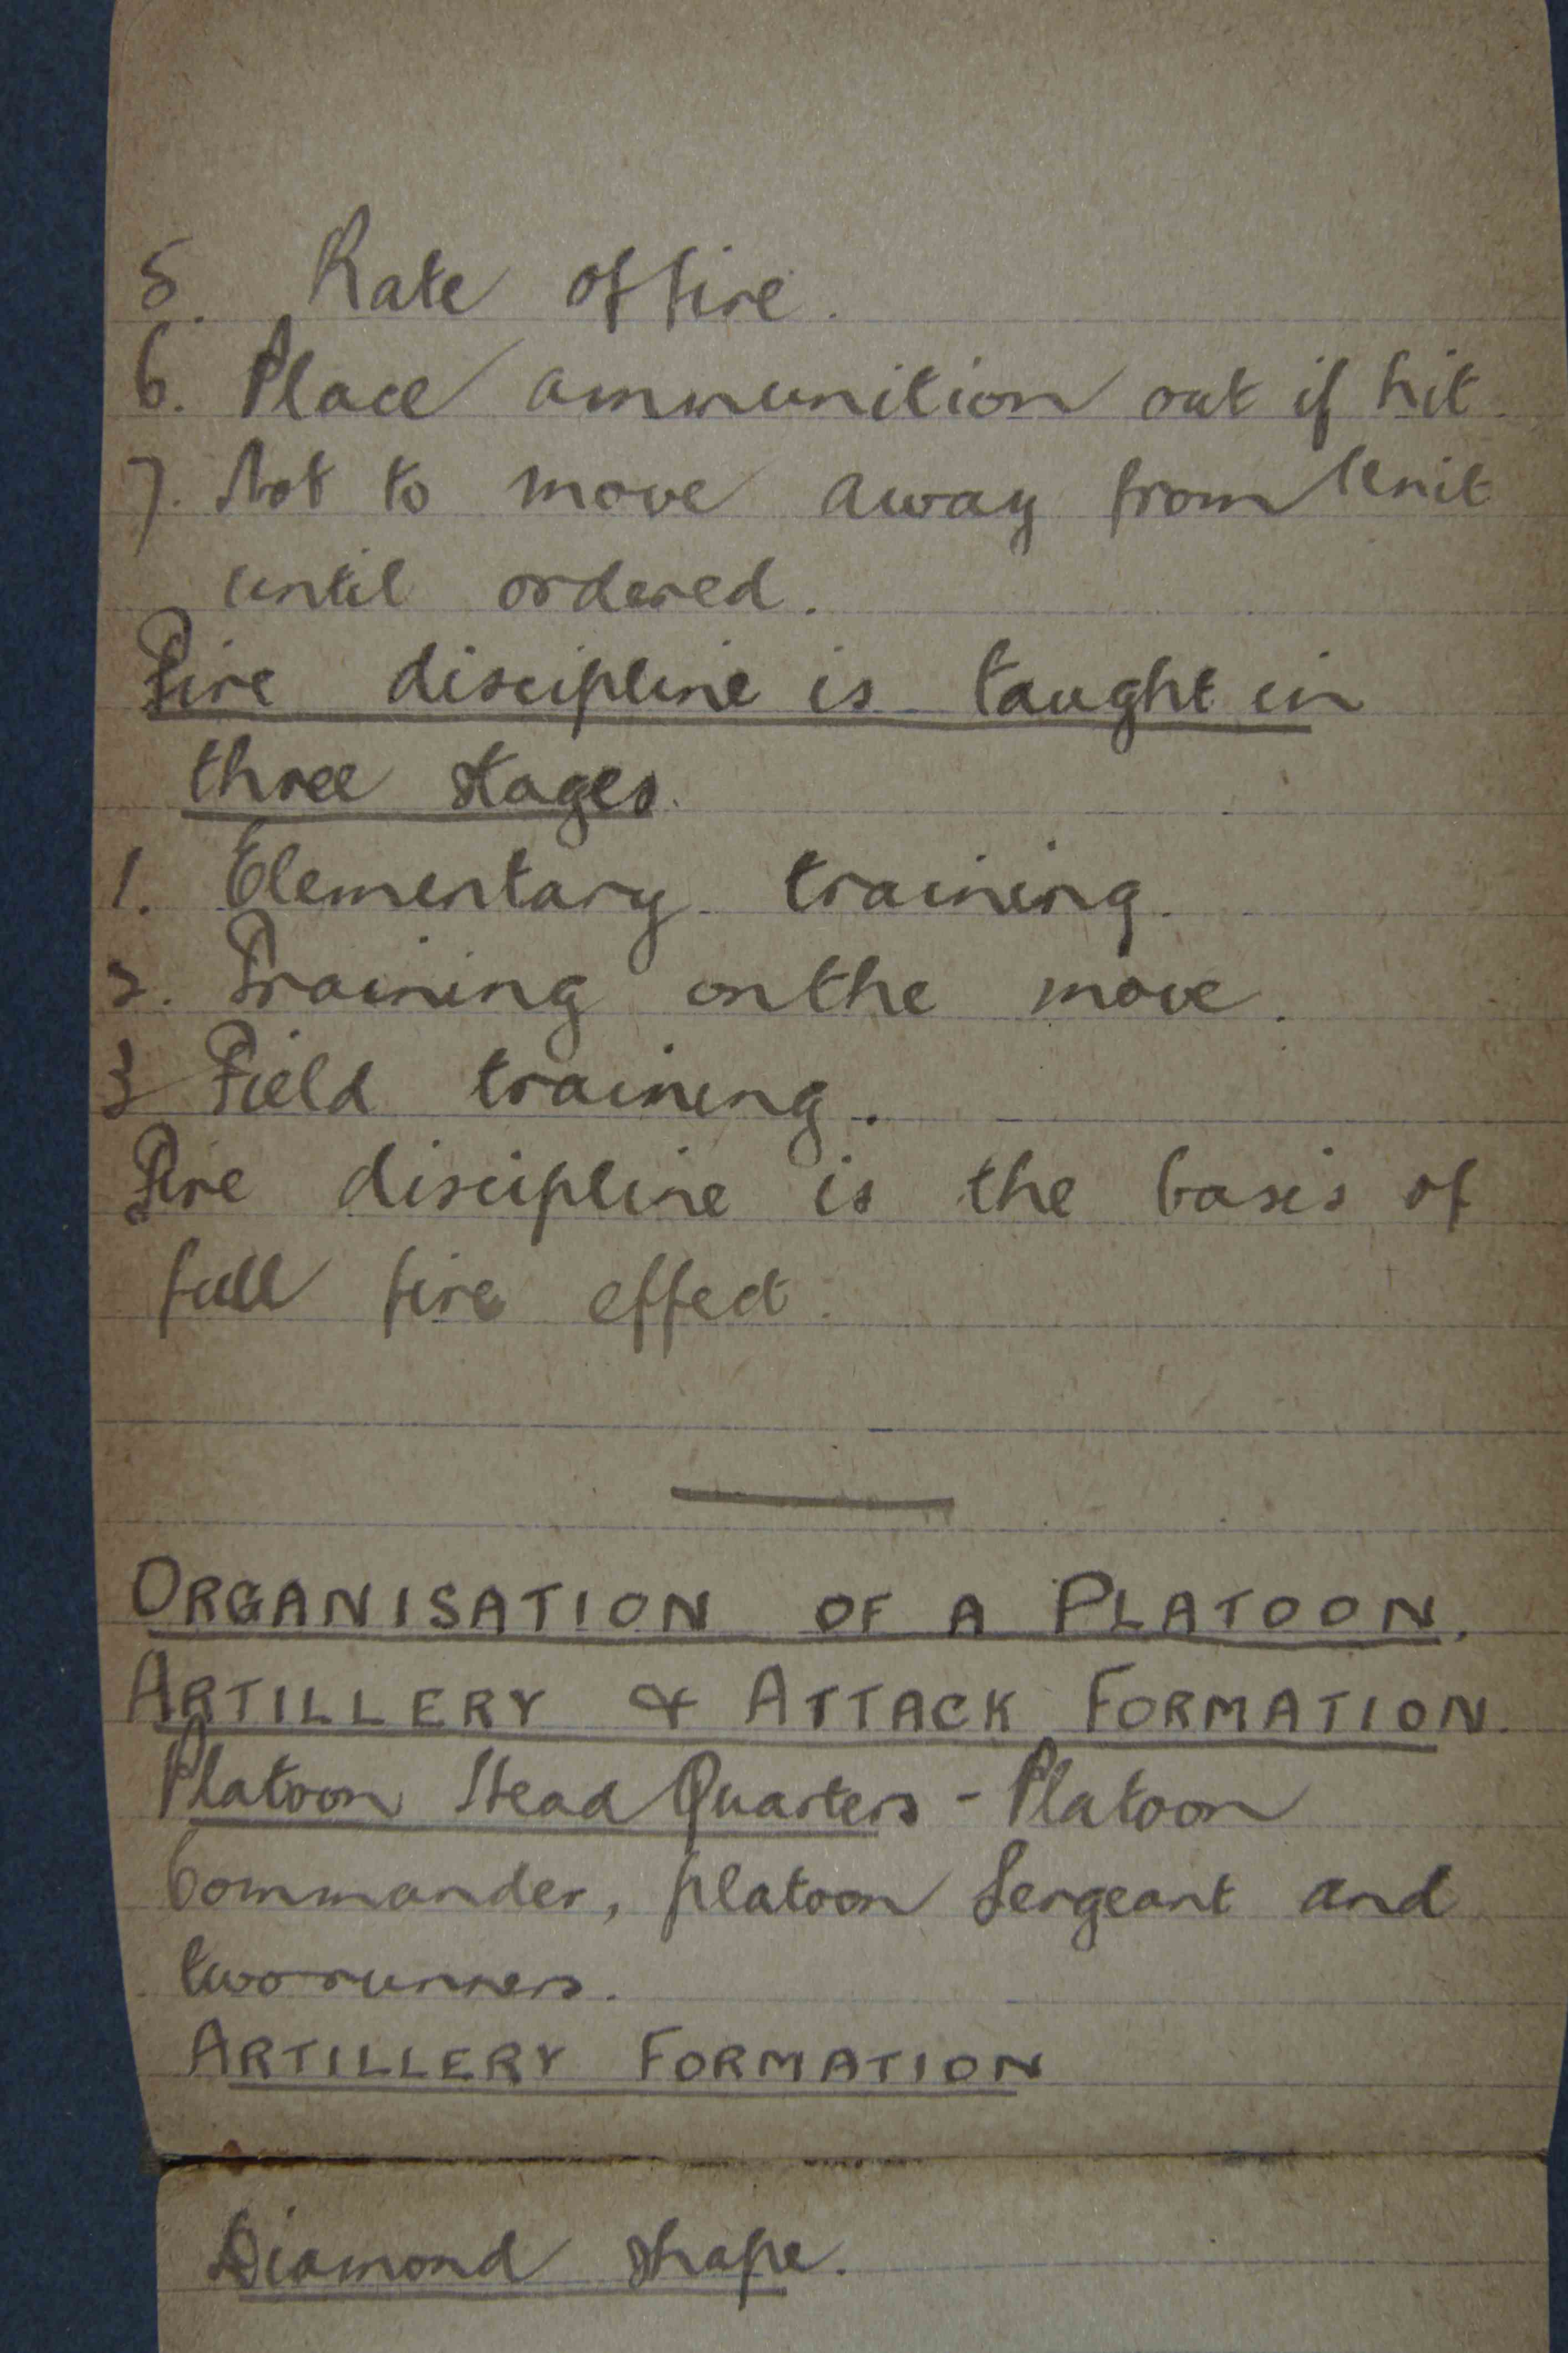 5. Rate of fire.
6. Place ammunition out if hit.
7. Not to move away from Unit
until ordered.
Fire discipline is taught in
three stages.
1. Elementary training.
2. Training on the move.
3 Field training.
Fire discipline is the basis of
full fire effect.
ORGANISATION OF A PLATOON.
ARTILLERY & ATTACK FORMATION.
Platoon Head Quarters - Platoon
Commander, platoon Sergeant and
two runners.
ARTILLERY FORMATION
Diamond shape.